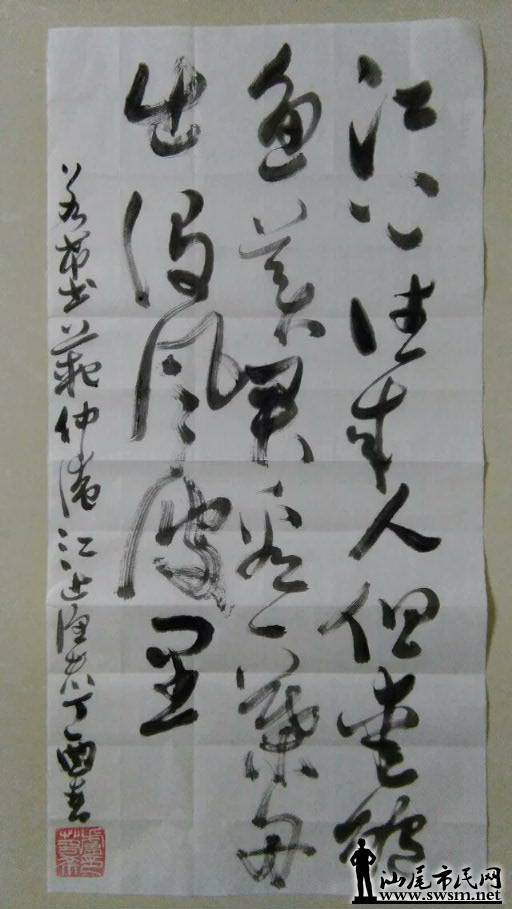 江上往来人但爱鲈
鱼美君看一叶舟
出没风波里
若希书范仲淹江上渔者丁酉春
汕尾市民网
www.swsm.net